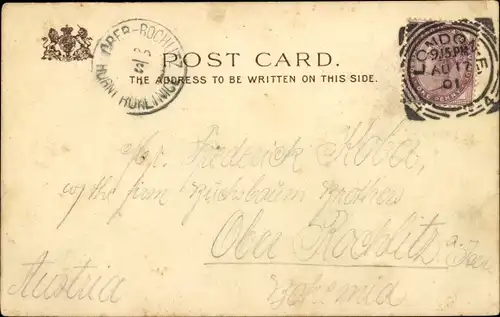 POST CARD.
THE ADDRESS TO BE WRITTEN ON THIS SIDE.
OBER-ROCHLITZ
HORNÍ ROKETNICE
LONDON
9.15 PM
AU 17
01
Mr. Frederick Koba,
w/ the firm Buchsbaum Brothers
Ober Rochlitz a. Iser
Bohemia
Austria